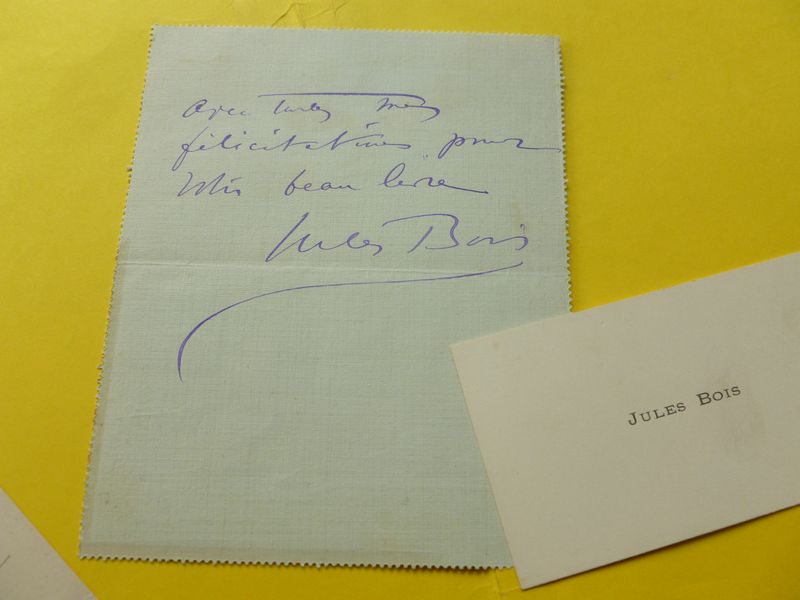 Avec toutes mes
félicitations pour
votre beau livre
Jules Bois
JULES BOIS